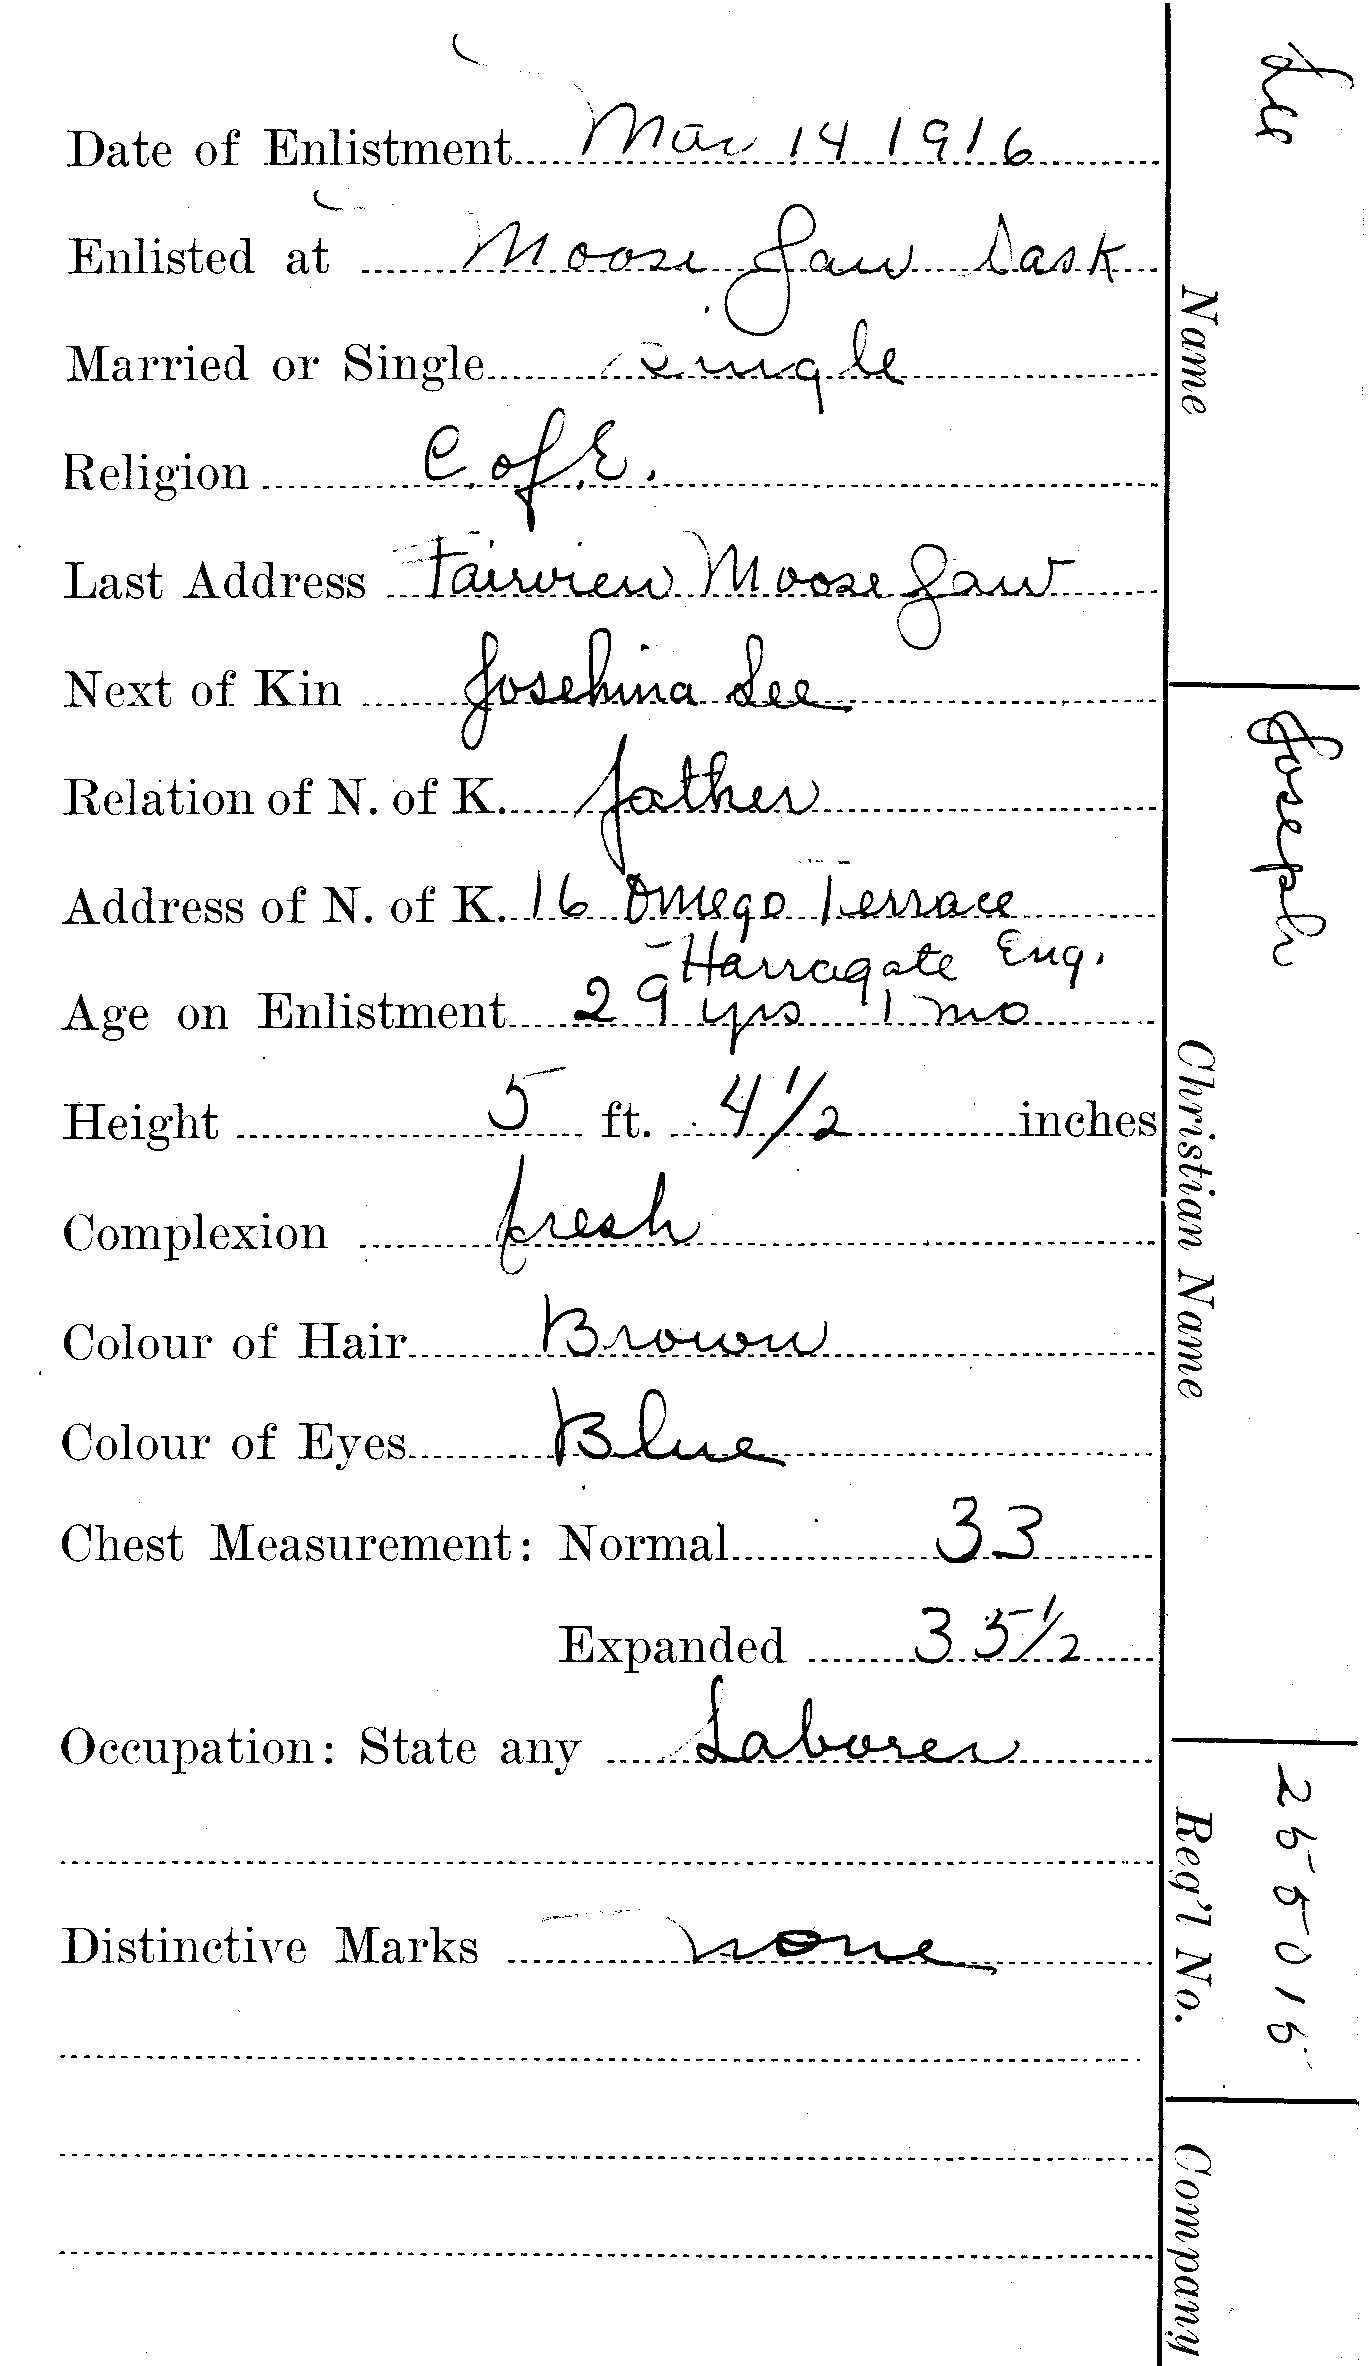 Date of Enlistment Mar 14 1916
Enlisted at Moose Jaw Sask
Married or Single single
Religion C. of E.
Last Address Fairview Moose Jaw
Next of Kin Josehina Lee
Relation of N. of K. father
Address of N. of K. 16 Omego Terrace
Harragate Eng.
Age on Enlistment 29 yrs 1 mo
Height 5 ft. 4 1/2 inches
Complexion fresh
Colour of Hair Brown
Colour of Eyes Blue
Chest Measurement: Normal 33
Expanded 35 1/2
Occupation: State any Laborer
Distinctive Marks none
Lee
Name
Joseph
Christian Name
255015
Reg'l No.
Company